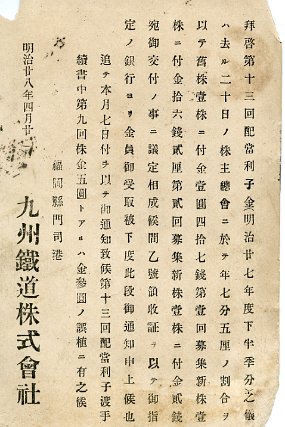 拜啓第十三回配當利子金明治廿七年度下半季分之儀
ハ去ル二十日ノ株主總會ニ於テ年七分五厘ノ割合ヲ
以テ舊株壹株ニ付金壹圓四拾七錢第壹回募集新株壹
株ニ付金拾六錢貳厘第貳回募集新株壹株ニ付金貳錢
宛御交付ノ事ニ議定相成候間乙號領收証ヲ以テ御指
定ノ銀行ヨリ金員御受取被下度此段御通知申上候也
追テ本月七日付ヲ以テ御通知致候第十三回配當利子渡手
續書中第九回株金五圓トアルハ金參圓ノ誤植ニ有之候
明治廿八年四月廿
福岡縣門司港
九州鐵道株式會社